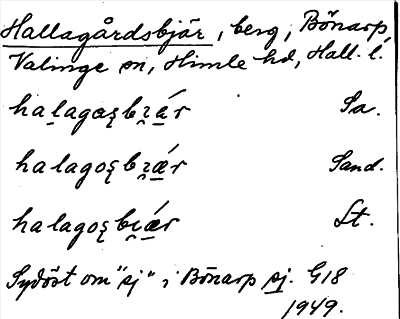 Hallagårdsbjär, berg, Bönarp,
Valinge sn, Himle hd, Hall. l.
halagoʂbɪ̯ǽr Sa.
halagoʂbɪ̯ǽr Sand.
halagoʂbɪ̯ǽr Lt.
Sydöst om "sj" i Bönarp sj. G18
1949.